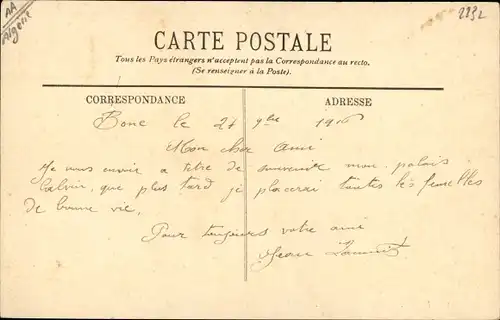 AA
Algérie
2232
CARTE POSTALE
Tous les Pays étrangers n'acceptent pas la Correspondance au recto.
(Se renseigner à la Poste).
CORRESPONDANCE
ADRESSE
Bone le 27 9bre 1916
Mon cher Ami
Je vous envoie a titre de souvenir mon palais
que plus tard je placerai toutes les femelles
de bonne vie.
Pour toujours votre ami
Jean